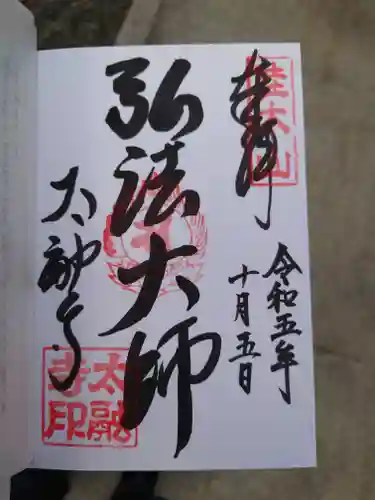 奉拝
桂木山
令和五年
十月五日
弘法大師
太融寺
太融
寺印